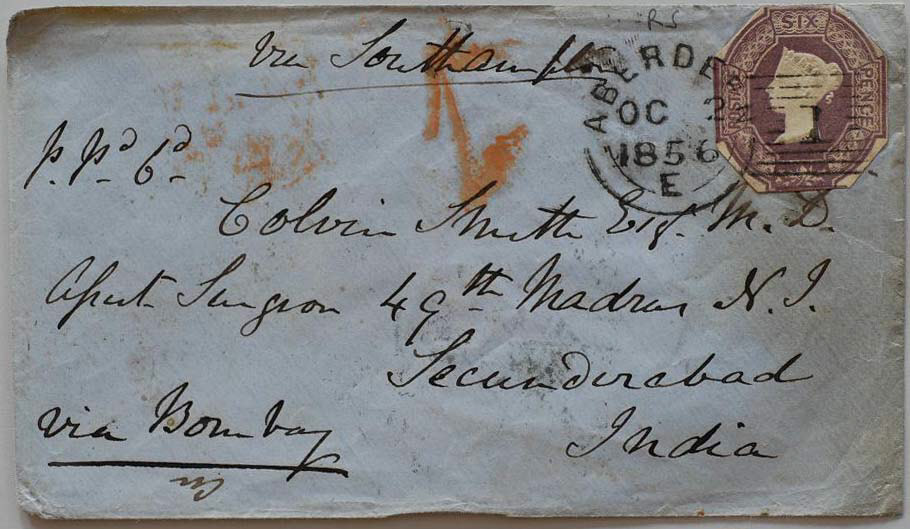 via Southampton
SIX
PENCE
ABERDEE
OC 2
1856
E
1
p. Pd 6d
Colvin Smith Esq. M. D.
Assist Surgeon 49th Madras N. I.
Secunderabad
via Bombay
India